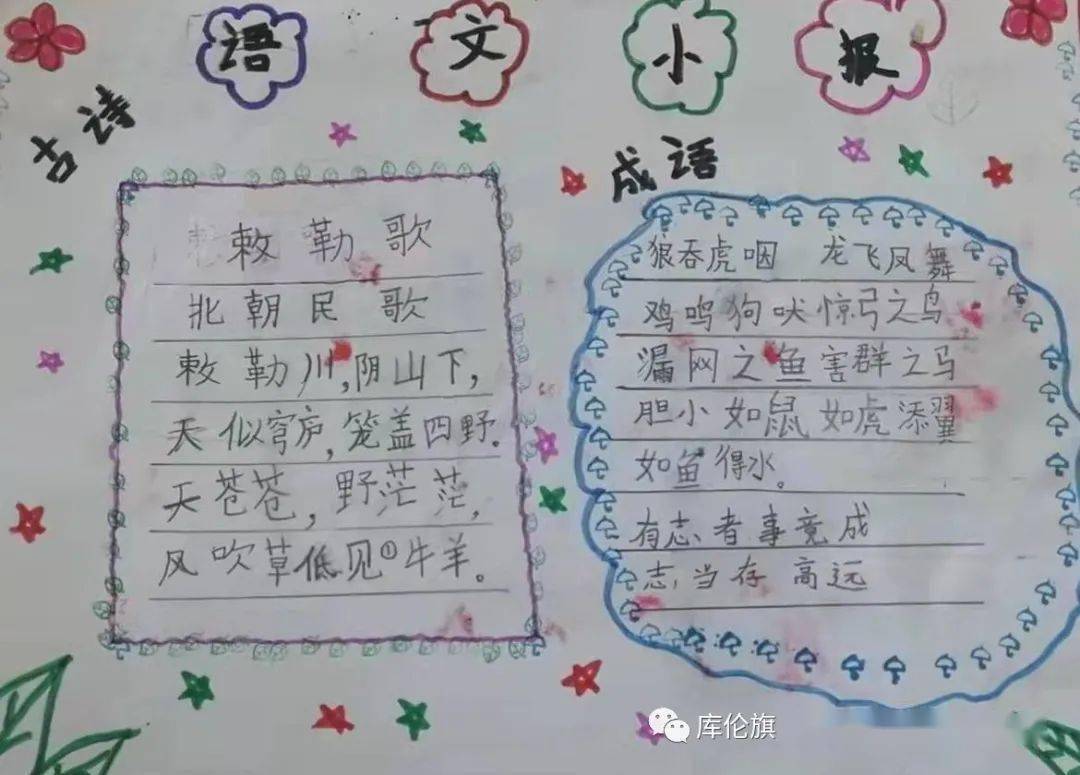 语文小报
古诗
敕勒歌
北朝民歌
敕勒川,阴山下,
天似穹庐,笼盖四野.
天苍苍,野茫茫,
风吹草低见①牛羊。
成语
狼吞虎咽 龙飞凤舞
鸡鸣狗吠惊弓之鸟
漏网之鱼害群之马
胆小如鼠 如虎添翼
如鱼得水。
有志者事竟成
志当存高远
库伦旗